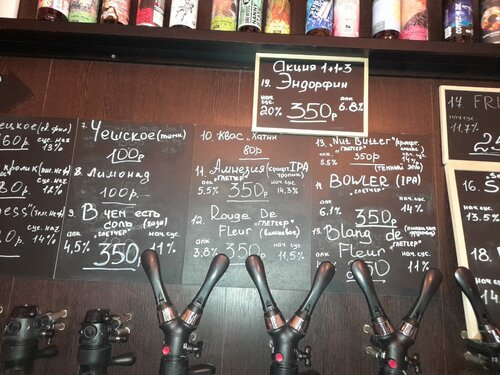 Акция 1+1=3
19. Эндорфин
нач. сус. 20% 350р алк 6.8%
7. Чешское (темн.)
100р
8. Лимонад
100р.
9. В чем есть
соль (гозе)
"глетчер"
алк 4,5% 350р нач. сус. 11%
10. Квас "Хатни
80р
11. Амнезия (крафт. IPA
"Глетчер"
алк. 5.5% 350р нач. сус. 14,3%
12. Rouge De
Fleur "Глетчер"
(вишневое)
алк. 3.8% 350р нач. сус. 11,5%
13. "Nut Butter"
"Глетчер"
алк. 5.5% 350р
(темный эль)
14. BOWLER (IPA)
"глетчер"
алк. 6.1% 350р нач. сус. 14%
15. Blang de
Fleur "глетчер"
алк. 350 нач. сус. 11%
ецкое (св. фил)
60р нач. сус. 13%
нач. сус. 12%
80р
ness"
нач. сус. 14%
17 FRU
нач. сус. 11.7%
16.
нач. сус. 14%
18.